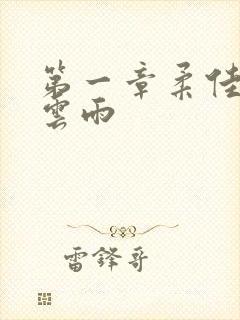 第一章柔佳
雲雨
雷鋒哥